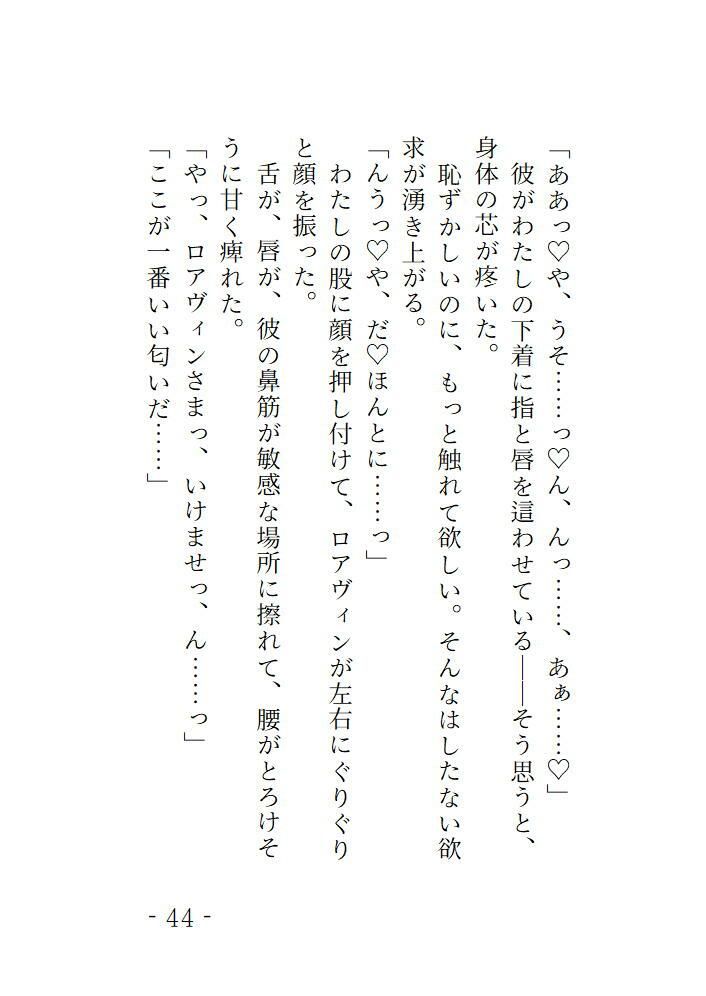 「ああっ♡や、うそ……っ♡ん、んっ……、あぁ……♡」
　彼がわたしの下着に指と唇を這わせている――そう思うと、
身体の芯が疼いた。
　恥ずかしいのに、もっと触れて欲しい。そんなはしたない欲
求が湧き上がる。
「んうっ♡や、だ♡ほんとに……っ」
　わたしの股に顔を押し付けて、ロアヴィンが左右にぐりぐり
と顔を振った。
　舌が、唇が、彼の鼻筋が敏感な場所に擦れて、腰がとろけそ
うに甘く痺れた。
「やっ、ロアヴィンさまっ、いけませっ、ん……っ」
「ここが一番いい匂いだ……」
- 44 -